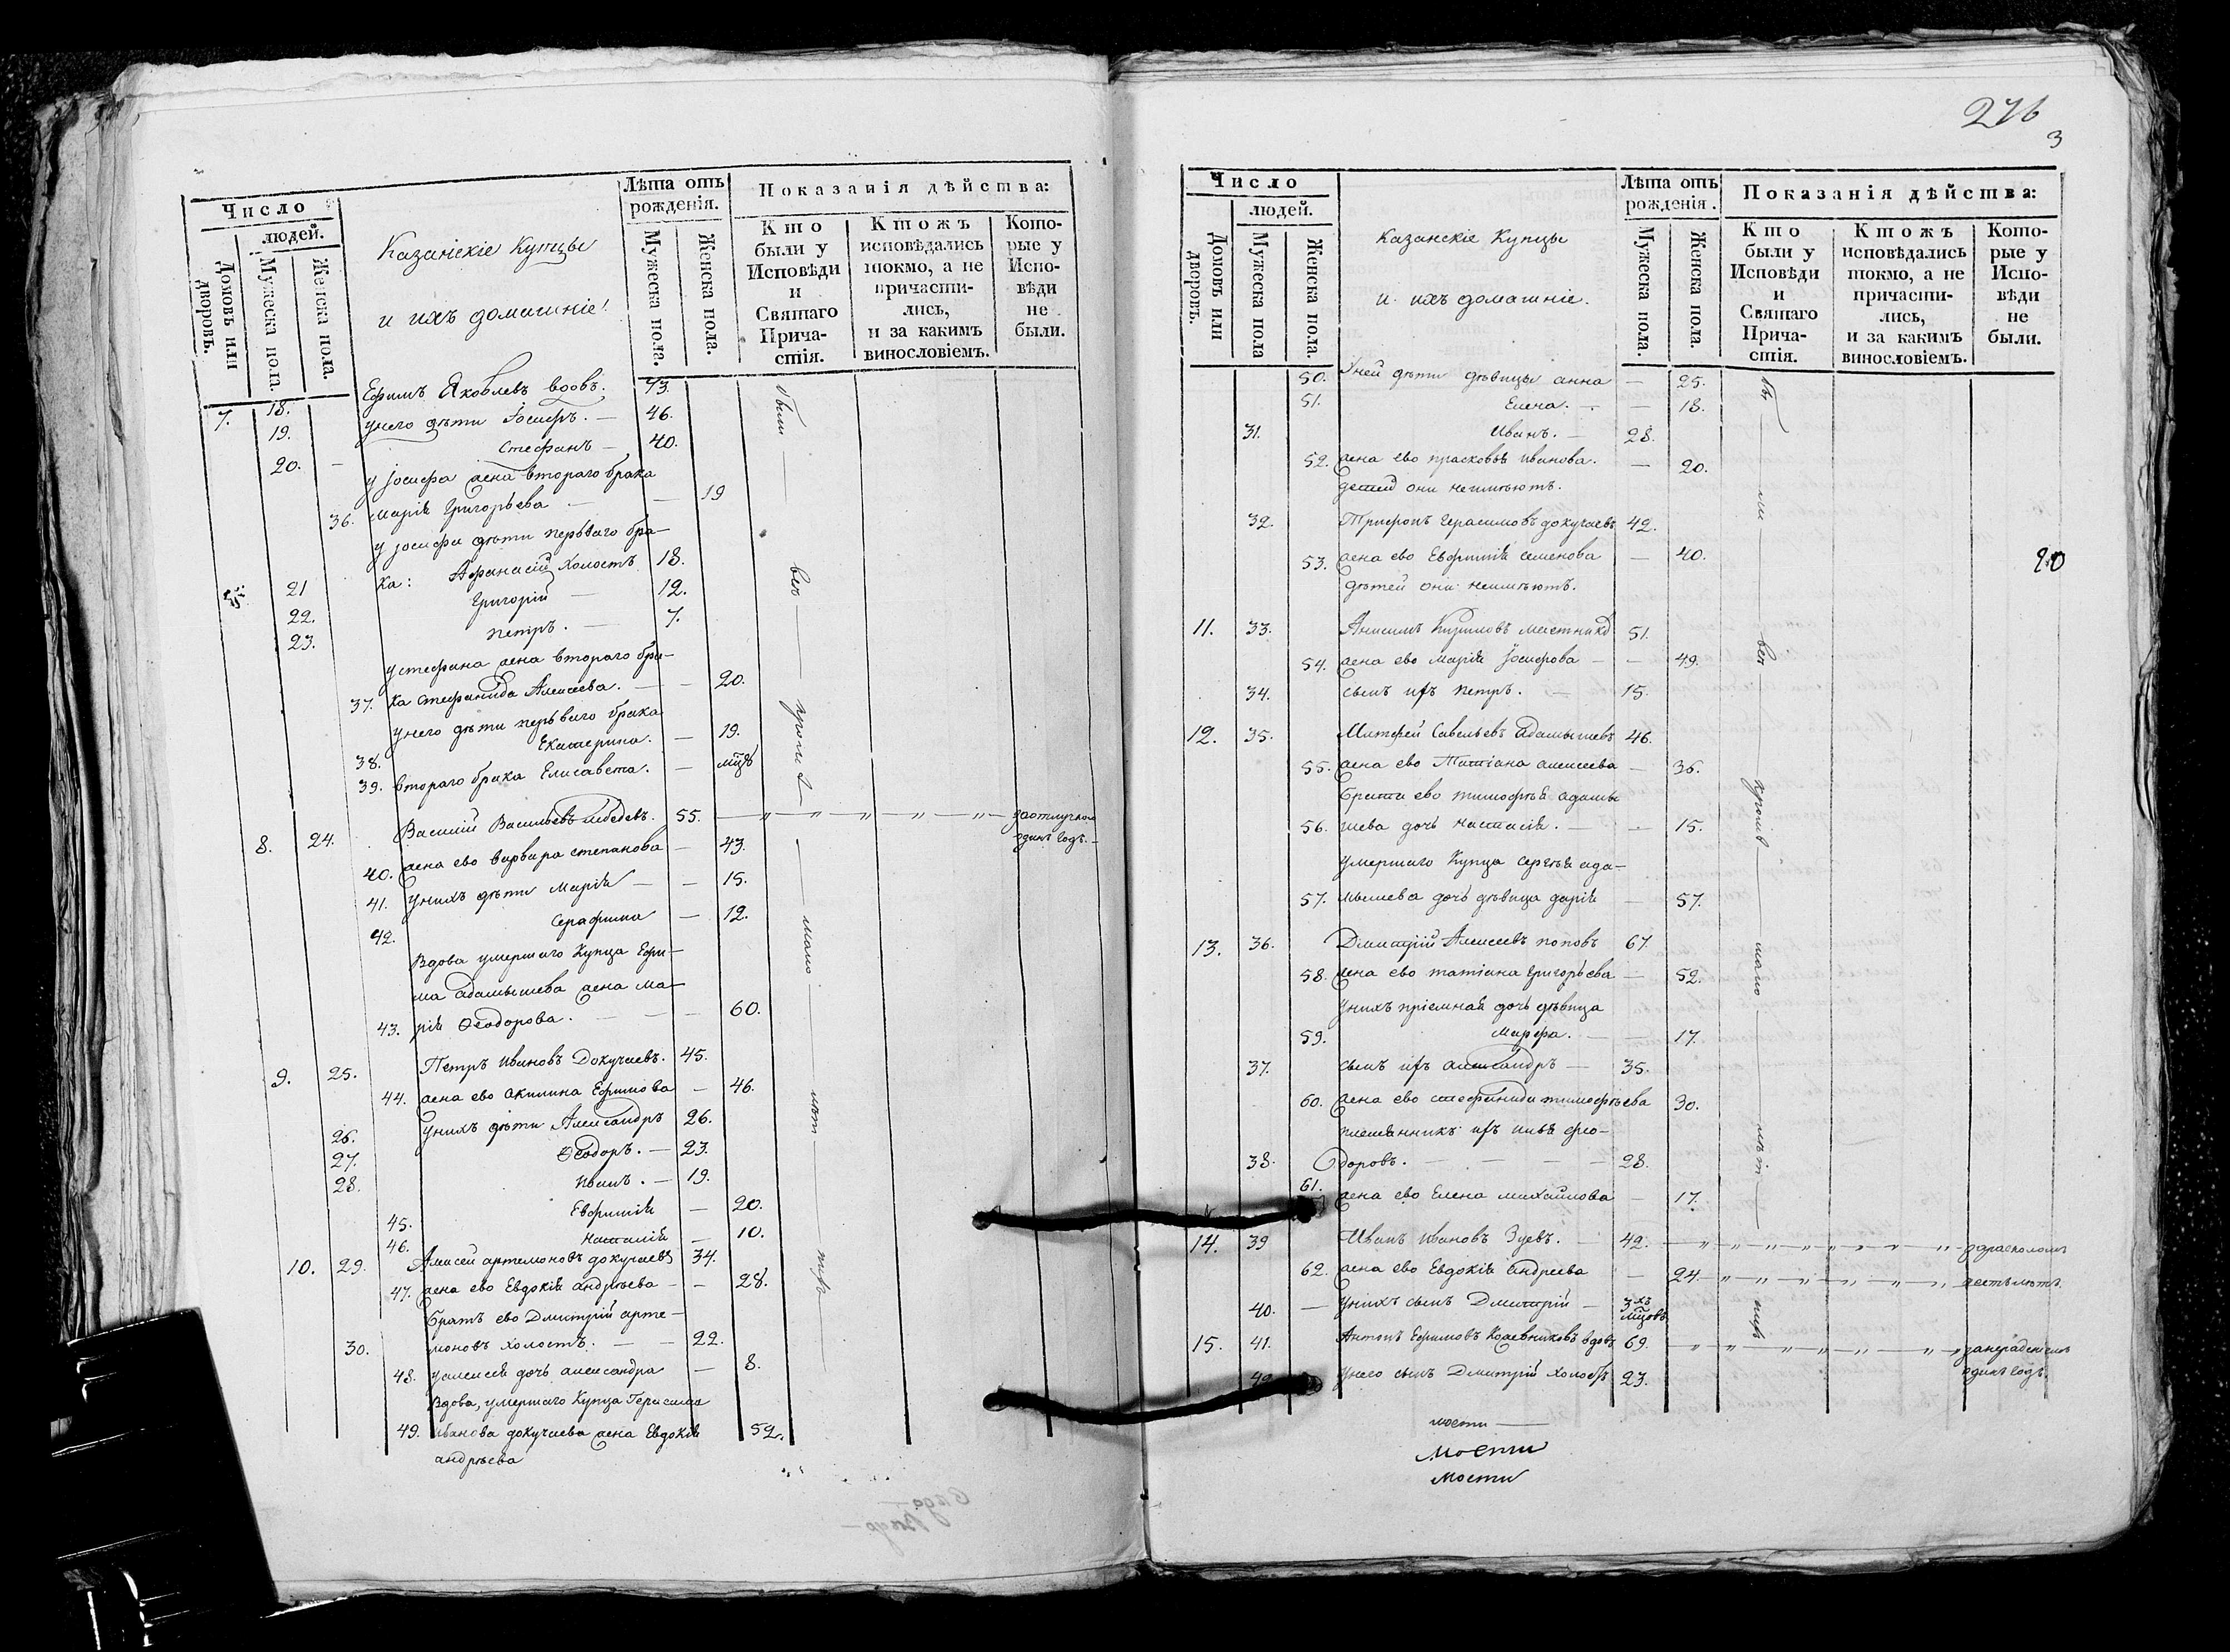 Число
людей.
Домовъ или дворовъ.
Мужеска пола.
Женска пола.
Казанскіе Купцы
и ихъ домашніе.
Лѣта отъ рожденія.
Мужеска пола.
Женска пола.
Показанія дѣйства:
Кто были у Исповѣди и Святаго Причастія.
Ктожъ исповѣдались токмо, а не причастились, и за какимъ винословіемъ.
Которые у Исповѣди не были.
7. 18. Ефимъ Яковлевъ вдовъ. 73.
19. унего дѣти Іосифъ. — 46.
20. — Стефанъ — 40.
у Іосифа жена втораго брака
36. Марія Григорьева — — 19
у Іосифа дѣти перьваго бра—
21 ка: Афанасій холостъ 18.
22. Григорій — 12.
23. Петръ. — 7.
устефана жена втораго бра—
37. ка Стефанида Алексеева. — — 20.
унего дѣти перьваго брака
38. Екатерина. — 19.
39. втораго брака Елисавета. —
8. 24. Василій Васильевъ лебедевъ. 55. заотлучкою
одинъ годъ. —
40. жена ево варвара степанова — 43.
41. унихъ дѣти Марія — — 15.
42. Серафима — 12.
Вдова умершаго Купца Ефи—
ма адамышева жена ма—
43. рія Ѳеодорова. — — — 60.
9. 25. Петръ Ивановъ Докучаевъ. 45.
44. жена ево акилина Ефимова — 46.
26. унихъ дѣти Александръ 26.
27. Ѳеодоръ. — 23.
28. Иванъ. — 19.
45. Евфимія — 20.
46. Наталія — 10.
10. 29. Алексей артемоновъ докучаевъ 34.
47. жена ево Евдокія андрѣева — — 28.
братъ ево Дмитрій арте—
30. моновъ холостъ. — — 22.
48. уалексея дочь александра — 8.
Вдова, умершаго Купца Герасима
49. Иванова докучаева жена Евдокія 52.
андрѣева
276
3
Число
людей.
Домовъ или дворовъ.
Мужеска пола
Женска пола.
Казанскіе Купцы
и ихъ домашніе.
Лѣта отъ рожденія.
Мужеска пола.
Женска пола.
Показанія дѣйства:
Кто были у Исповѣди и Святаго Причастія.
Ктожъ исповѣдались токмо, а не причастились, и за какимъ винословіемъ.
Которые у Исповѣди не были.
50. Уней дѣти дѣвицы анна — 25.
51. Елена. — — 18.
31. Иванъ. — 28.
52. жена ево прасковья иванова. — 20.
детей они неимѣютъ.
32. Трифонъ Герасимовъ докучаевъ 42.
53. жена ево Евфимія семенова — 40.
дѣтей они неимѣютъ.
20
11. 33. Анисимъ 51.
54. жена ево марія Іосифова — — 49.
34. сынъ ихъ петръ. — 15.
12. 35. Матфей Савельевъ адамышевъ 46.
55. жена ево Татіана алексеева — 36.
брата ево тимофѣя адамы
56. шева дочь настасія. — — 15.
умершаго Купца сергѣя ада—
57. мышева дочь дѣвица дарія — 57.
13. 36. Дмитрій Алексеевъ поповъ 67.
58. жена ево татіана григорьева — 52.
унихъ пріемная дочь дѣвица
59. Марфа. — — 17.
37. сынъ ихъ александръ — 35.
60. жена ево стефанида тимофѣева 30.
племянникъ ихъ фео—
38. доровъ. — — — — 28.
61. жена ево Елена михайлова — 17.
14. 39 Иванъ Ивановъ Зуевъ. — 42. зарасколомъ
62. жена ево Евдокія андреева — 24.
40. — унихъ сынъ Дмитрій — 3хъ мцовъ
15. 41. Антонъ Ефимовъ Кожевниковъ вдовъ 69. занерадѣніемъ
унего сынъ Дмитрій холостъ 23. одинъ годъ.
мости —
Мости
мости